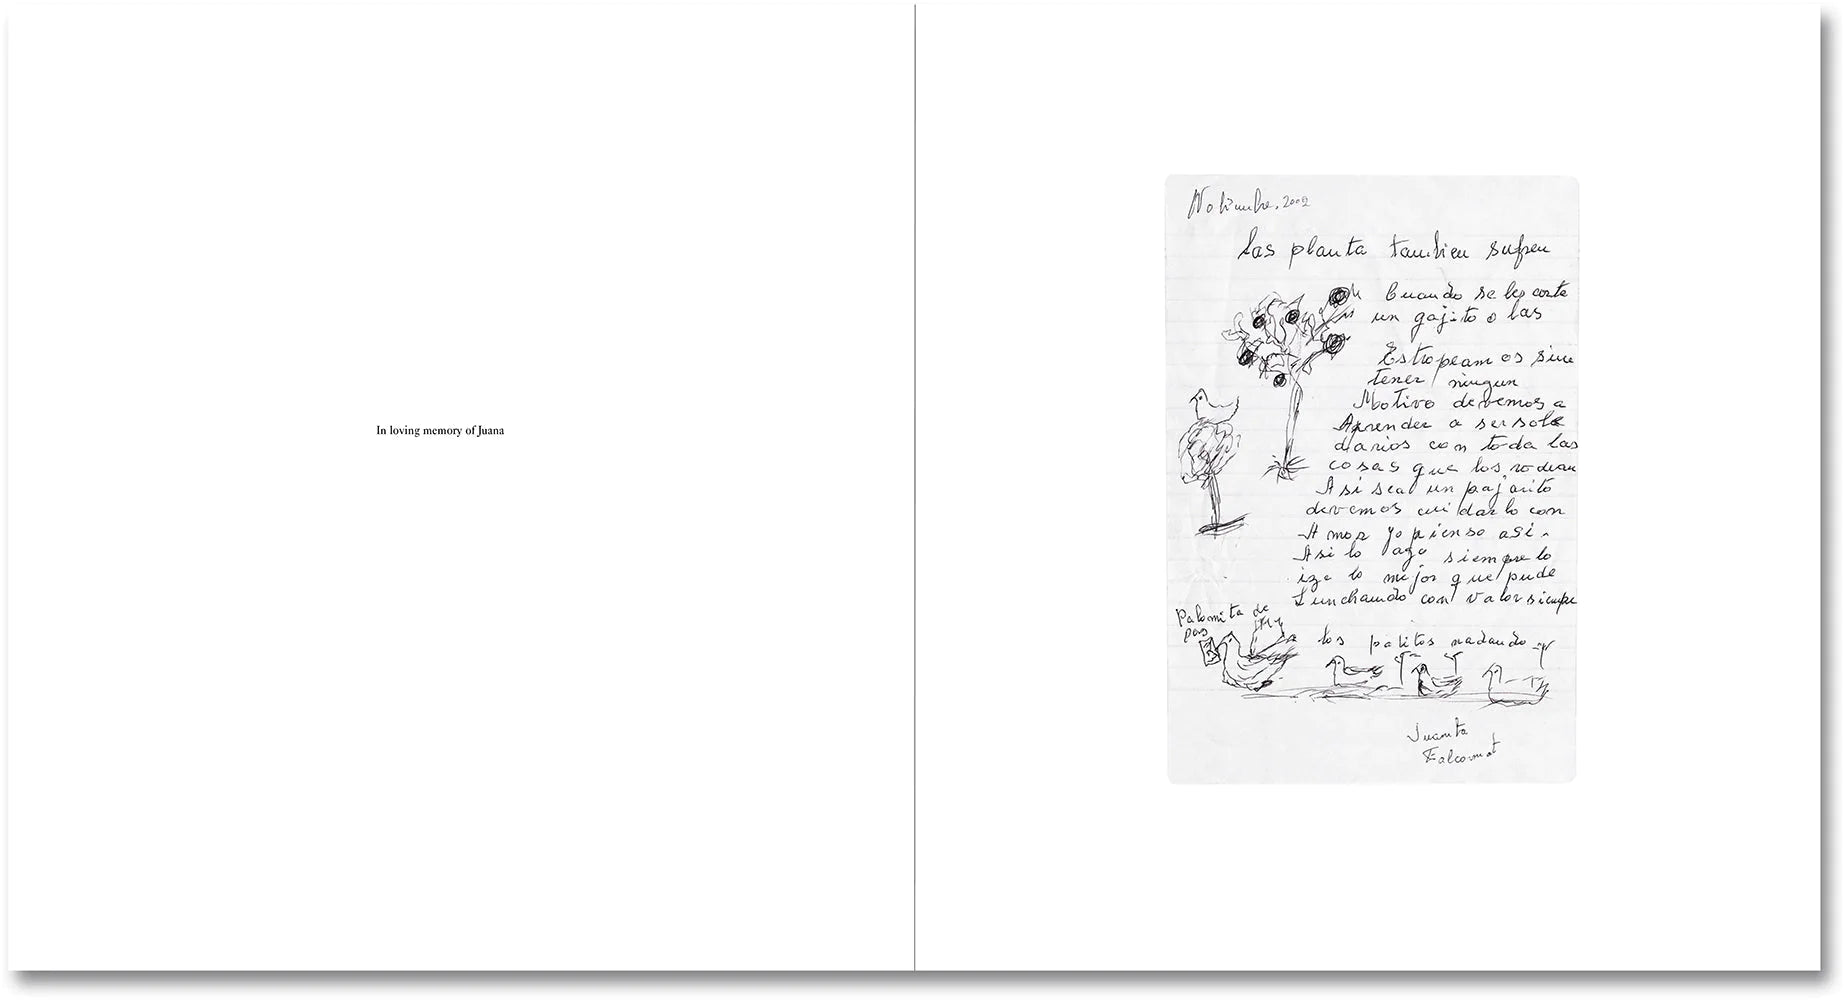 In loving memory of Juana
Nobiembre, 2002
las planta tambien sufren
Cuando se les corta
un gajito o las
Estropeamos sin
tener ningun
Motivo devemos a
Aprender a ser sole
darios con toda las
cosas que los rodean
Asi sea un pajarito
devemos cuidarlo con
Amor yo pienso asi.
Asi lo ago siempre lo
ize lo mejor que pude
Lunchando con valor siempre
Palomita de
pas
los patitos nadando
Juanita
Falcomat